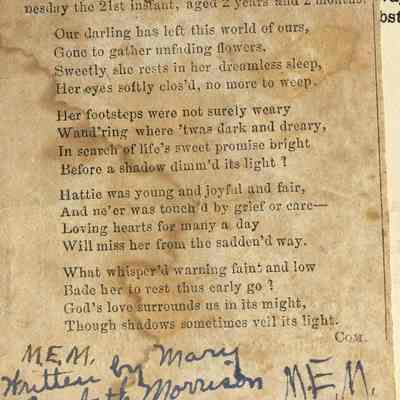 nesday the 21st instant, aged 2 years and 2 months.
Our darling has left this world of ours,
Gone to gather unfading flowers.
Sweetly she rests in her dreamless sleep,
Her eyes softly clos'd, no more to weep.
Her footsteps were not surely weary
Wand'ring where 'twas dark and dreary,
In search of life's sweet promise bright
Before a shadow dimm'd its light?
Hattie was young and joyful and fair,
And ne'er was touch'd by grief or care—
Loving hearts for many a day
Will miss her from the sadden'd way.
What whisper'd warning faint and low
Bade her to rest thus early go?
God's love surrounds us in its might,
Though shadows sometimes veil its light.
COM.
M.E.M.
Written by Mary
Morrison M.E.M.